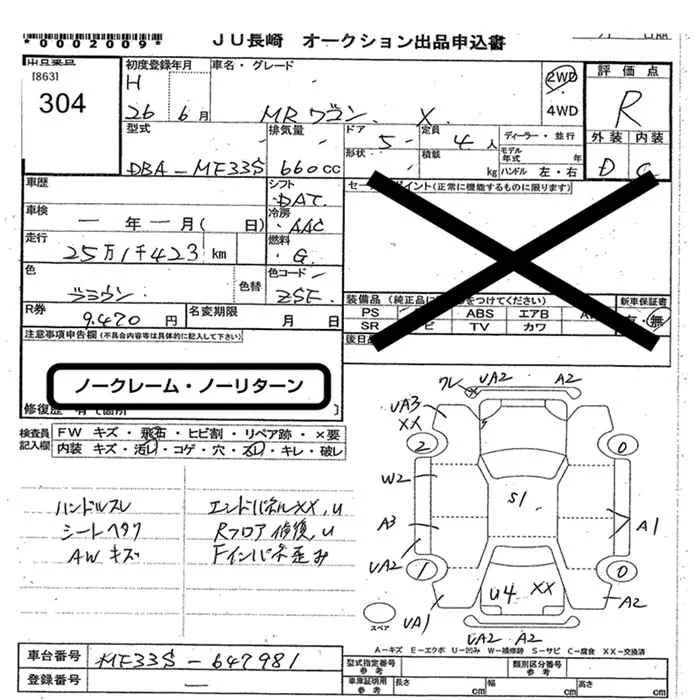 *0002009*
JU長崎 オークション出品申込書
[863]
304
初度登録年月
H
26 6月
車名・グレード
MRワゴン X
2WD
・
4WD
評価点
R
外装 内装
D C
型式
DBA-MF33S
排気量
660cc
ドア
5
定員
4人
形状
積載
kg
ディーラー・並行
モデル
年式 年
ハンドル 左・右
車歴
シフト
DAT
車検
一年一月( 日)
冷房
AAC
走行
25万1千423 km
燃料
G
色
ブラウン
色替
色コード
ZSE
R券
9,470円
名変期限
月 日
イント(正常に機能するものに限ります)
装備品(純正品に をつけてください)
PS ABS エアB
SR TV カワ
新車保証書
有・無
注意事項申告欄(不具合内容等は具体的に記入して下さい)
ノークレーム・ノーリターン
修復歴
検査員
記入欄
FW キズ・飛石・ヒビ割・リペア跡・×要
内装 キズ・汚レ・コゲ・穴・スレ・キレ・破レ
ハンドルスレ エンドパネルXX,u
シートヘタリ Rフロア修復,u
AWキズ Fインパネ歪み
ワレ UA2 A2
UA3
XX
2 0
W2
S1
A3 A1
UA2
1 0
U4 XX
A2
UA1
スペア
UA2 A2
A-キズ E-エクボ U-凹み W-補修跡 S-サビ C-腐食 XX-交換済
車台番号
MF33S-647981
登録番号
型式指定番号
参考
類別区分番号
参考
車庫証明用
参考
長さ cm
幅 cm
高さ cm